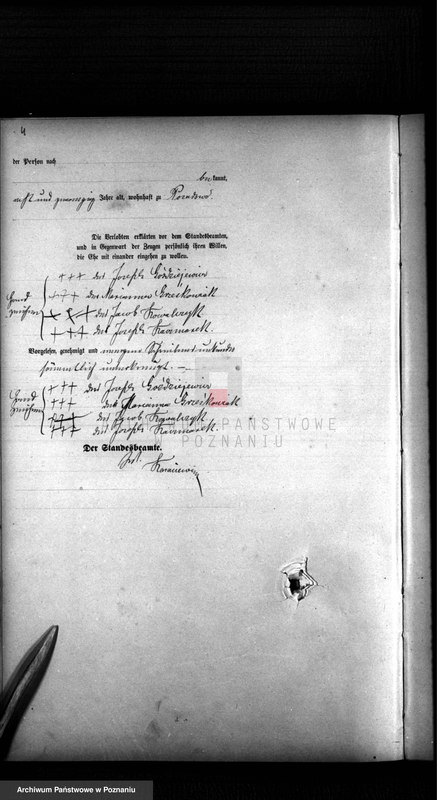 4
der Person nach
bekannt,
acht und zwanzig Jahre alt, wohnhaft zu
Die Verlobten erklärten vor dem Standesbeamten,
und in Gegenwart der Zeugen persönlich ihren Willen,
die Ehe mit einander eingehen zu wollen.
+++ des Joseph Goździejewicz
Hand +++ der Marianna Grześkowiak
zeichen +++ des Jacob Kowalczyk
+++ des Joseph Kaczmarek.
Vorgelesen, genehmigt und wegen Schreibensunkunde
sämmtlich unterkreuzt. —
Hand +++ des Joseph Goździejewicz
zeichen +++ der Marianna Grześkowiak
+++ des Jacob Kowalczyk
+++ des Joseph Kaczmarek.
Der Standesbeamte.
ARCHIWUM PAŃSTWOWE
POZNANIU
Archiwum Państwowe w Poznaniu